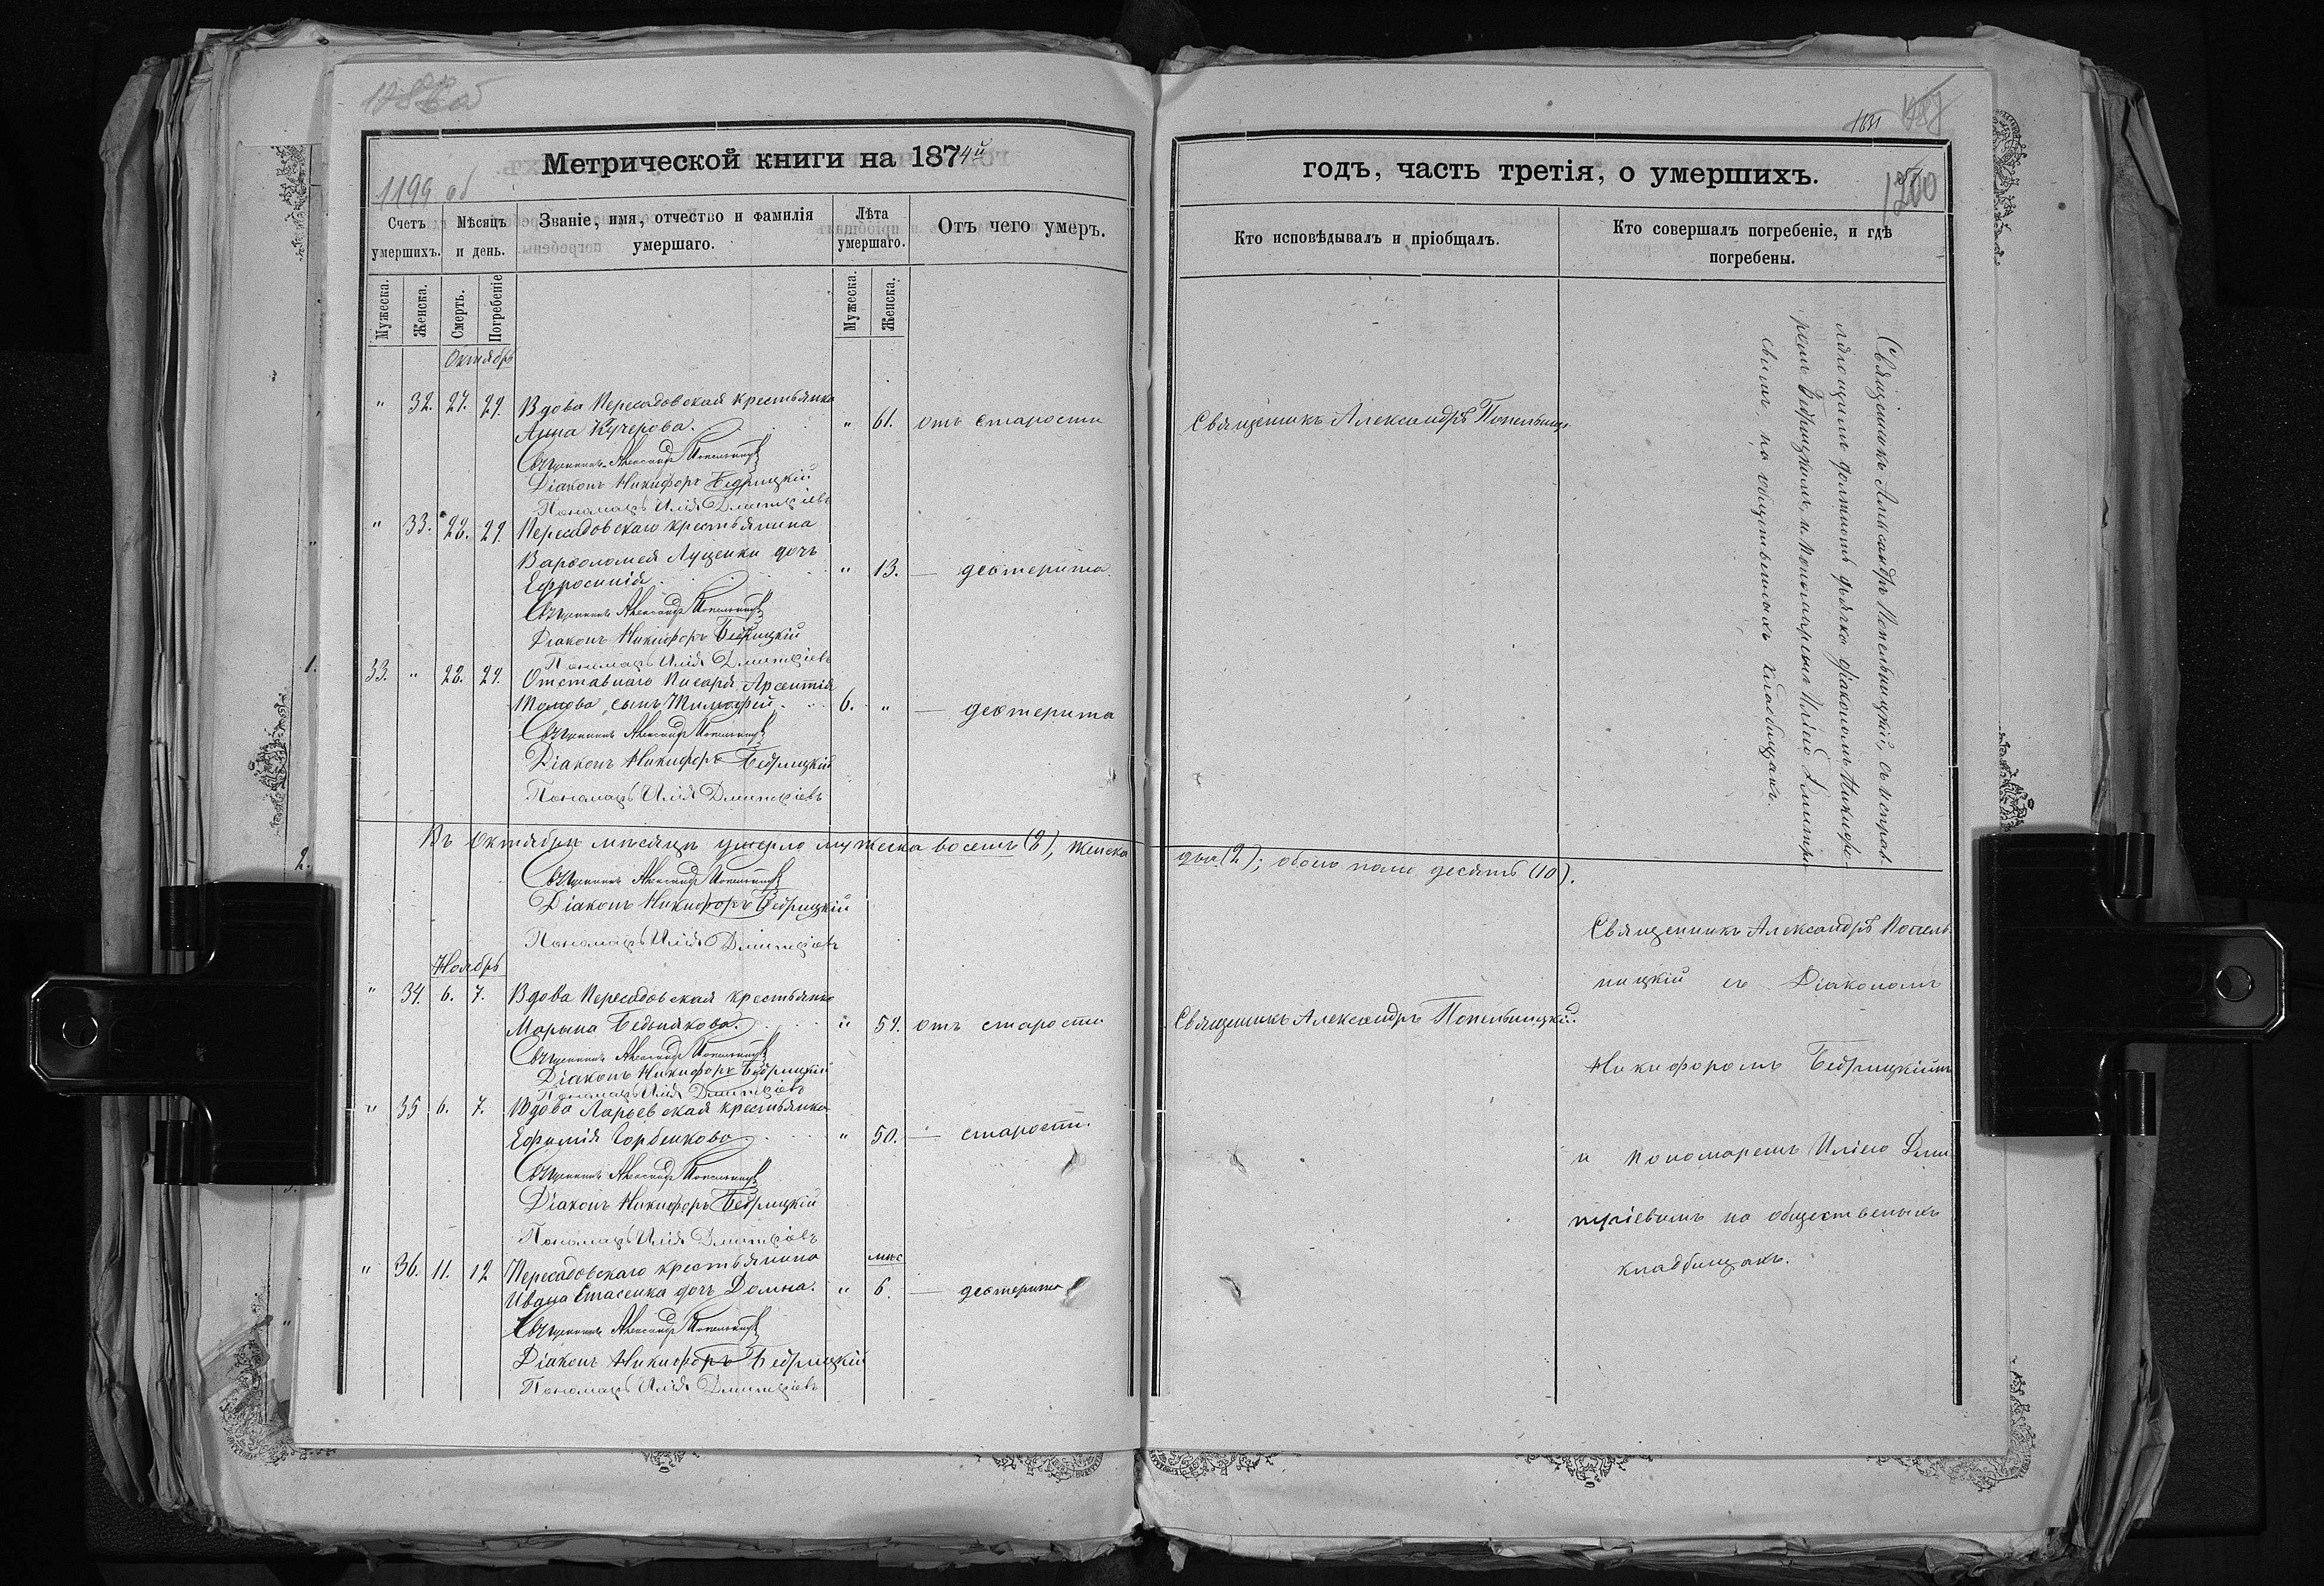 1199 об
Метрической книги на 1874й
Счетъ умершихъ.
Мѣсяцъ и день.
Званіе, имя, отчество и фамилія умершаго.
Лѣта умершаго.
Отъ чего умеръ.
Мужеска.
Женска.
Смерть.
Погребеніе
Мужеска.
Женска.
Октябрь
" 32. 27. 29. Вдова Пересадовская крестьянка
Анна Кучерова. " 61. отъ старости
Священникъ Александръ Попельницкій
Діаконъ Никифоръ Бедрицкій
Пономарь Илія Дмитріевъ
" 33. 28. 29. Пересадовскаго крестьянина
Варѳоломея Луценки дочь
Ефросинія " 13. — дѳтерита
Священникъ Александръ Попельницкій
Діаконъ Никифоръ Бедрицкій
Пономарь Илія Дмитріевъ
33. " 28. 29. Отставнаго писаря Арсентія
Томова, сынъ Тимофей 6. " — дѳтерита
Священникъ Александръ Попельницкій
Діаконъ Никифоръ Бедрицкій
Пономарь Илія Дмитріевъ
Въ октябрѣ мѣсяцѣ умерло мужеска восемь (8), женска
Священникъ Александръ Попельницкій
Діаконъ Никифоръ Бедрицкій
Пономарь Илія Дмитріевъ
Ноябрь
" 34. 6. 7. Вдова Пересадовская крестьянка
Марына Бедьнякова. " 59. отъ старости
Священникъ Александръ Попельницкій
Діаконъ Никифоръ Бедрицкій
Пономарь Илія Дмитріевъ
" 35 6. 7. Вдова Ларьевская крестьянка
Ефимія Горбенкова " 50. — старости.
Священникъ Александръ Попельницкій
Діаконъ Никифоръ Бедрицкій
Пономарь Илія Дмитріевъ
" 36. 11. 12 Пересадовскаго крестьянина мѣс
Ивана Стасенка дочь Домна. " 6. — дѳтерита
Священникъ Александръ Попельницкій
Діаконъ Никифоръ Бедрицкій
Пономарь Илія Дмитріевъ
1200
годъ, часть третія, о умершихъ.
Кто исповѣдывалъ и пріобщалъ.
Кто совершалъ погребеніе, и гдѣ погребены.
Священникъ Александръ Попельниц.
Священникъ Александръ Попельницкій, съ исправ-
ляющимъ должность дьячка діакономъ Никифо-
ромъ Бедрицкимъ, и пономаремъ Иліею Дмитрі
евымъ на общественыхъ кладбищахъ.
два (2); обоего пола десять (10).
Священникъ Александръ Попель
ницкій съ Діакономъ
Священникъ Александръ Попельницкій.
Никифоромъ Бедрицкимъ
и пономаремъ Иліею Дми
тріевымъ на общественыхъ
кладбищахъ.